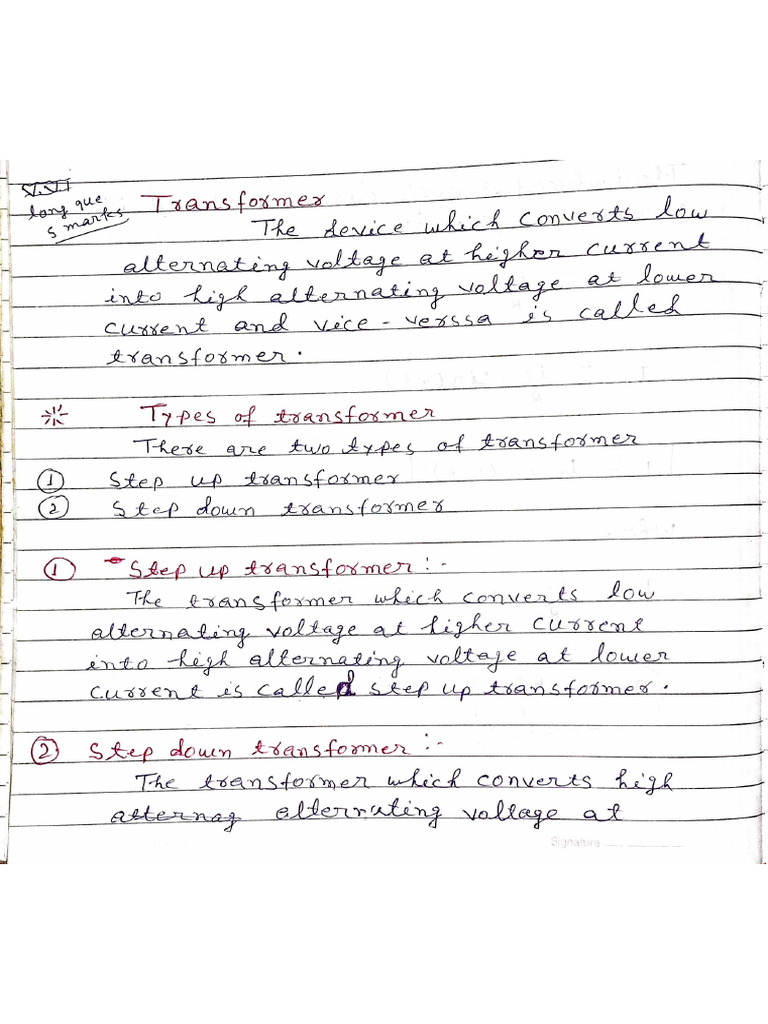 V.V.I
long que
5 marks
Transformer
The device which converts low
alternating voltage at higher current
into high alternating voltage at lower
current and vice-verssa is called
transformer.
Types of transformer
There are two types of transformer
1 Step up transformer
2 Step down transformer
1 Step up transformer :-
The transformer which converts low
alternating voltage at higher current
into high alternating voltage at lower
current is called step up transformer.
2 Step down transformer :-
The transformer which converts high
alternag alternating voltage at
Signature